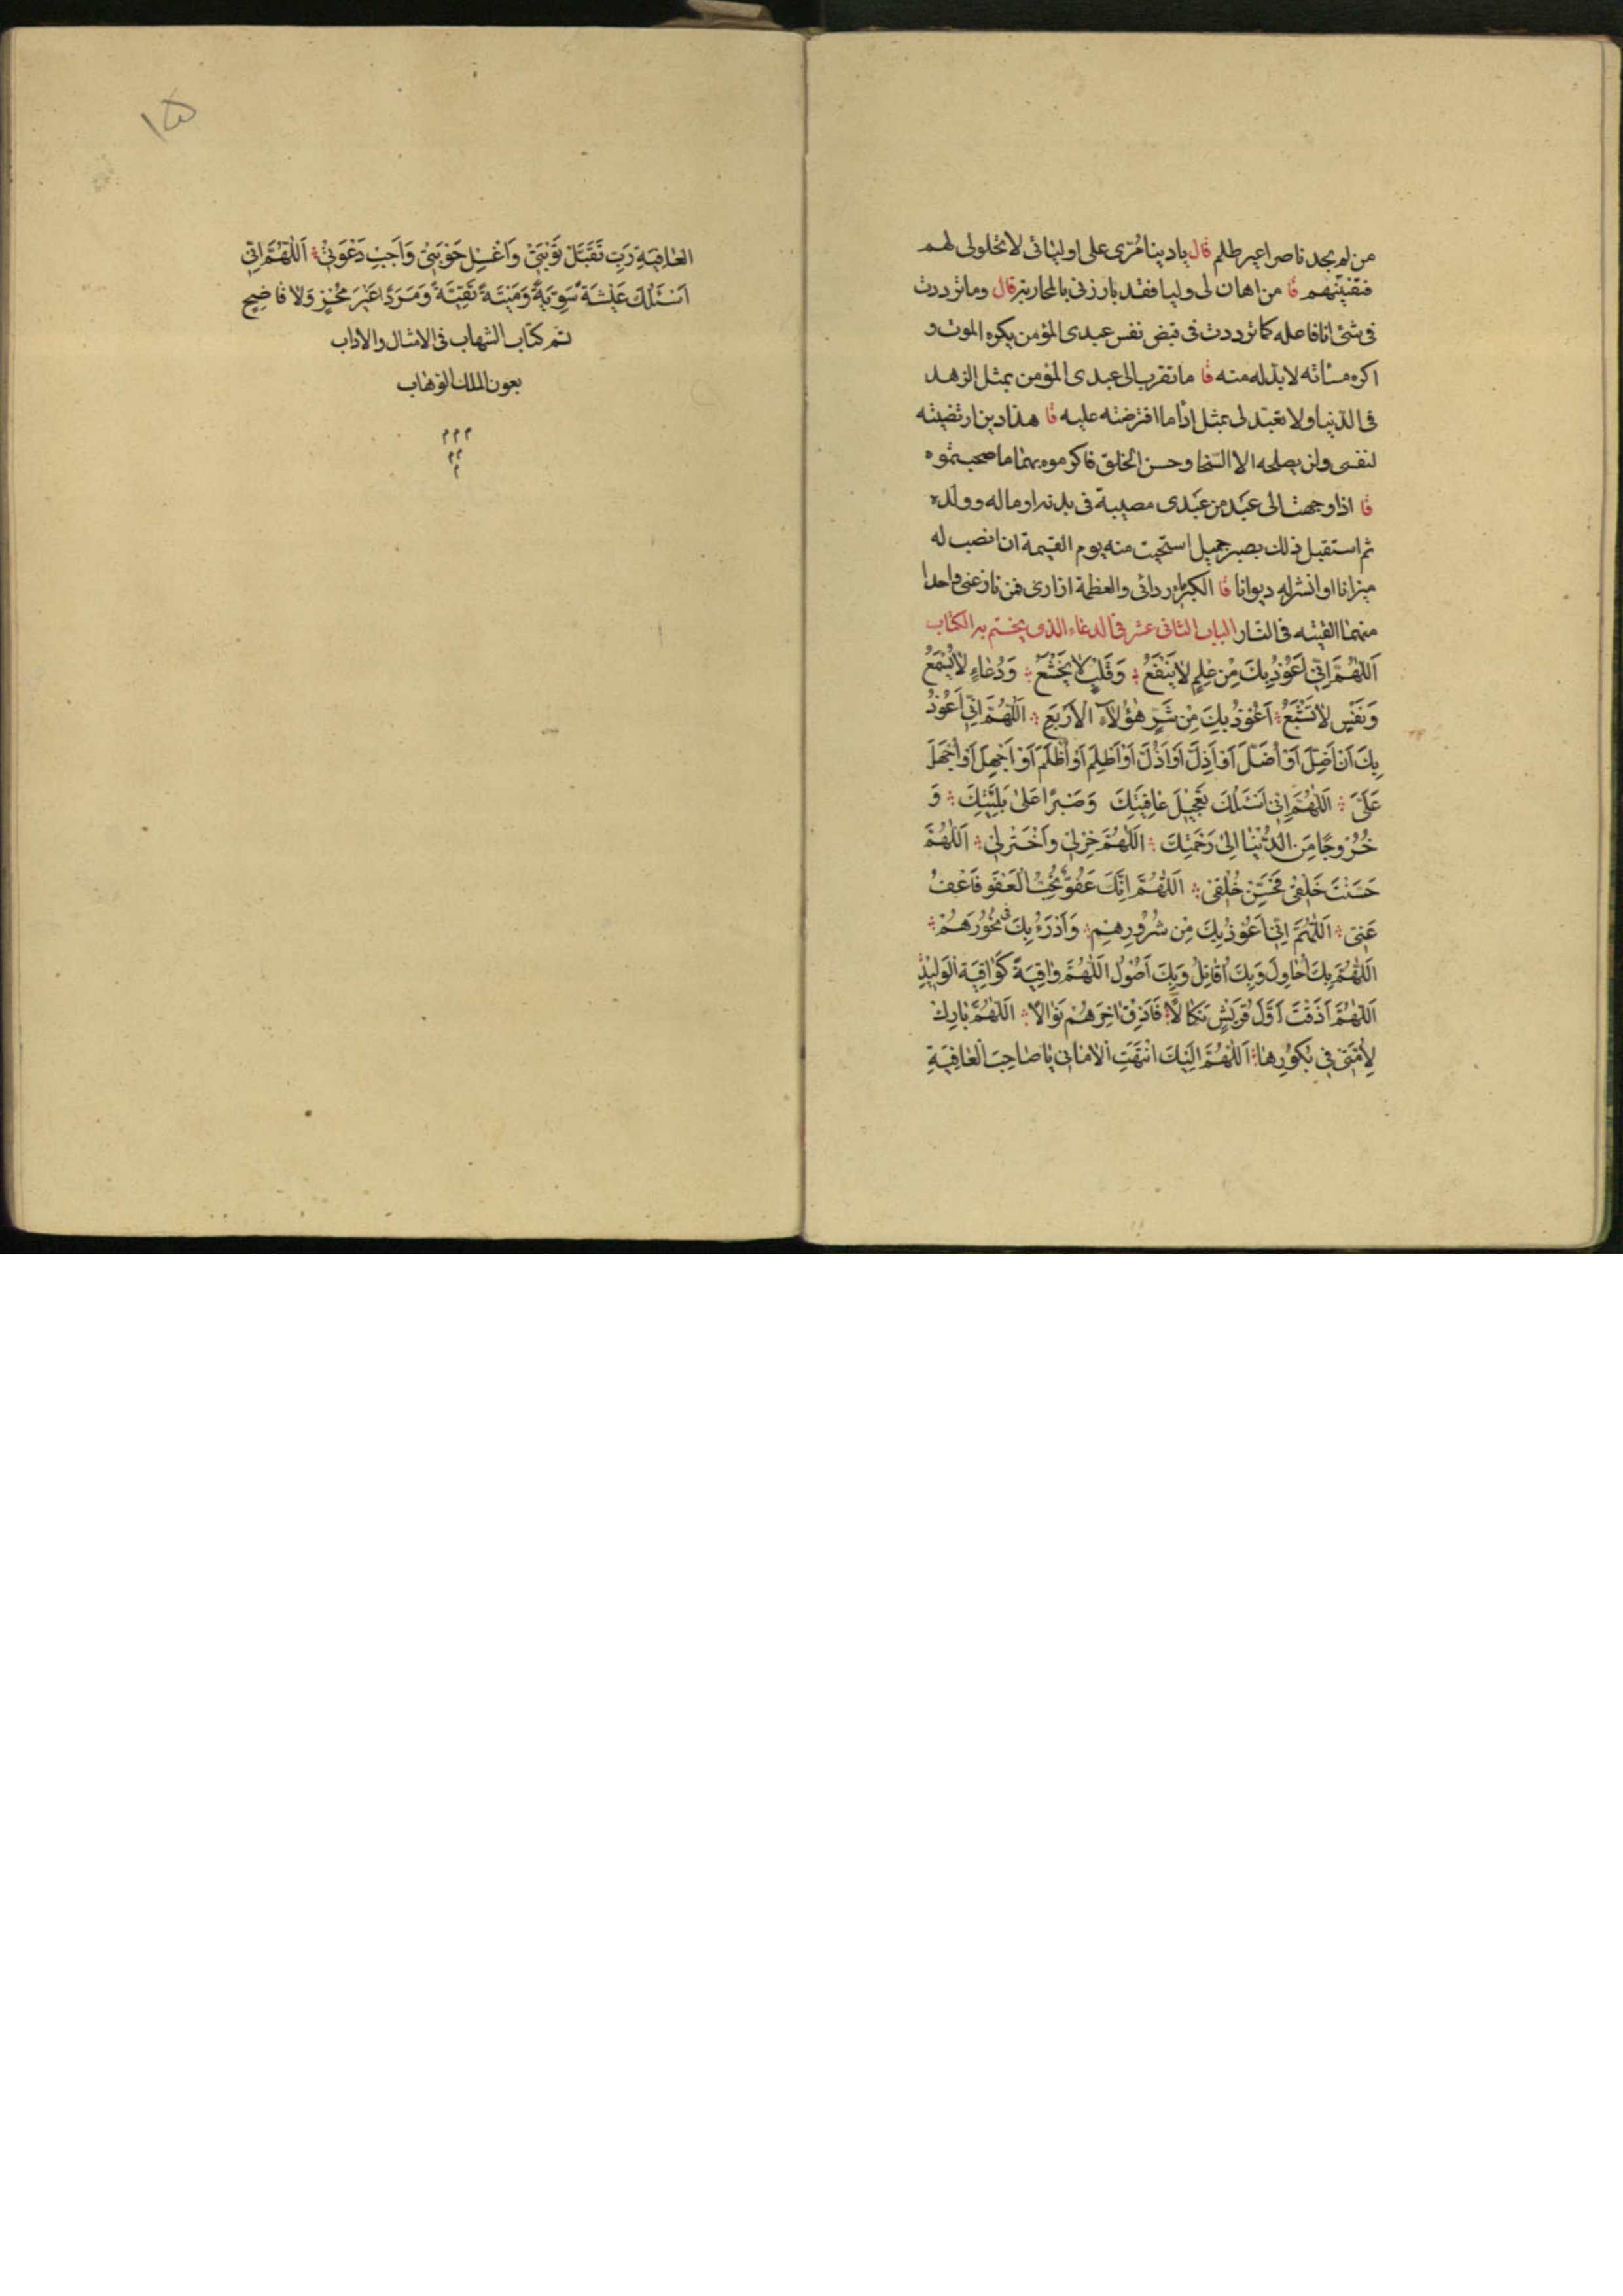 من لم يجد ناصرا غير طلم قال يا دينا مُرّى على اوليائى لا تخلولى لهم
فتفتنيهم قا من اهان لى وليا فقد بارزنى بالمحاربة قال وما ترددت
فى شئ انا فاعله كما ترددت فى قبض نفس عبدى المؤمن يكره الموت و
اكره مسأته لا بد له منه قا ما تقرب الى عبدى المؤمن بمثل الزهد
فى الدّنيا ولا تعبّد لى بمثل اداْ ما افترضته عليه قا هذا دين ارتضيته
لنفسى ولن يصلحه الا السّخا وحسن الخلق فاكرموه بهما ما صحبتموه
قا اذا وجهت الى عَبْد من عَبْدى مصيبة فى بدنه او ماله و ولده
ثم استقبل ذلك بصبر جميل استحيت منه يوم القيمة ان انصب له
ميزانا او انشر له ديوانا قا الكبرياء ردائى والعظمة ازارى فمن نازعنى واحدا
منهما القيته فى النّار الباب الثانى عشر فى الدعاء الذى يختم به الكتاب
اَللّٰهُمَّ اِنّى اَعُوْذُ بِكَ مِنْ عِلْمٍ لا يَنْفَعُ وَقَلْبٍ لا يَخْشَعُ وَدُعٰاءٍ لا يُسْمَعُ
وَنَفْسٍ لا تَشْبَعُ اَعُوْذُ بِكَ مِنْ شَرِّ هٰؤُلاۤءِ الاَرْبَعِ اَللّٰهُمَّ اِنّى اَعُوْذُ
بِكَ اَنْ اَضِلَّ اَوْ اُضَلَّ اَوْ اَذِلَّ اَوْ اُذَلَّ اَوْ اَظْلِمَ اَوْ اُظْلَمَ اَوْ اَجْهِلَ اَوْ اُجْهَلَ
عَلَىَّ اَللّٰهُمَّ اِنّى اَسْئَلُكَ تَعْجيْلَ عٰافِيَتِكَ وَصَبْرًا عَلىٰ بَلِيَّتِكَ وَ
خُرُوجًا مِنَ الدُّنْيٰا اِلىٰ رَحْمَتِكَ اَللّٰهُمَّ خِرْلى وَاخْتَرْلى اَللّٰهُمَّ
حَسَنْتَ خَلْقى فَحَسِّنْ خُلُقى اَللّٰهُمَّ اِنَّكَ عَفُوٌّ تُحِبُّ الْعَفْوَ فَاعْفُ
عَنىّ اَللّٰهُمَّ اِنّى اَعُوْذُ بِكَ مِنْ شُرُوْرِهِمْ وَاَدْرَءُ بِكَ فى نُحُوْرِهِمْ
اَللّٰهُمَّ بِكَ اُحٰاوِلُ وَبِكَ اُقٰاتِلُ وَبِكَ اَصُوْلُ اَللّٰهُمَّ وٰاقِيَةً كَوٰاقِيَةِ الْوَليْدِ
اَللّٰهُمَّ اَذَقْتَ اَوَّلَ قُرَيْشٍ نَكٰالاً فَاَذِقْ اٰخِرَهُمْ نَوٰالاً اَللّٰهُمَّ بٰارِكْ
لِاُمَّتى فى بُكُوْرِهٰا اَللّٰهُمَّ اِلَيْكَ انْتَهَتِ الْاَمٰانى يٰا صٰاحِبَ الْعٰافِيَةِ
۱۵
العٰافِيَةِ رَبِّ تَقَبَّلْ تَوْبَتىْ وَاغْسِلْ حَوْبَتىْ وَاَجِبْ دَعْوَتىْ اَللّٰهُمَّ اِنّى
اَسْئَلُكَ عَيْشَةً سَوِيَّةً وَمَيْتَةً نَقِيَّةً وَمَرَدًّا غَيْرَ مُخْزٍ وَلا فاضِحٍ
تم كتاب الشهاب فى الامثال والاداب
بعون الملك الوهاب
م م م
م م
م